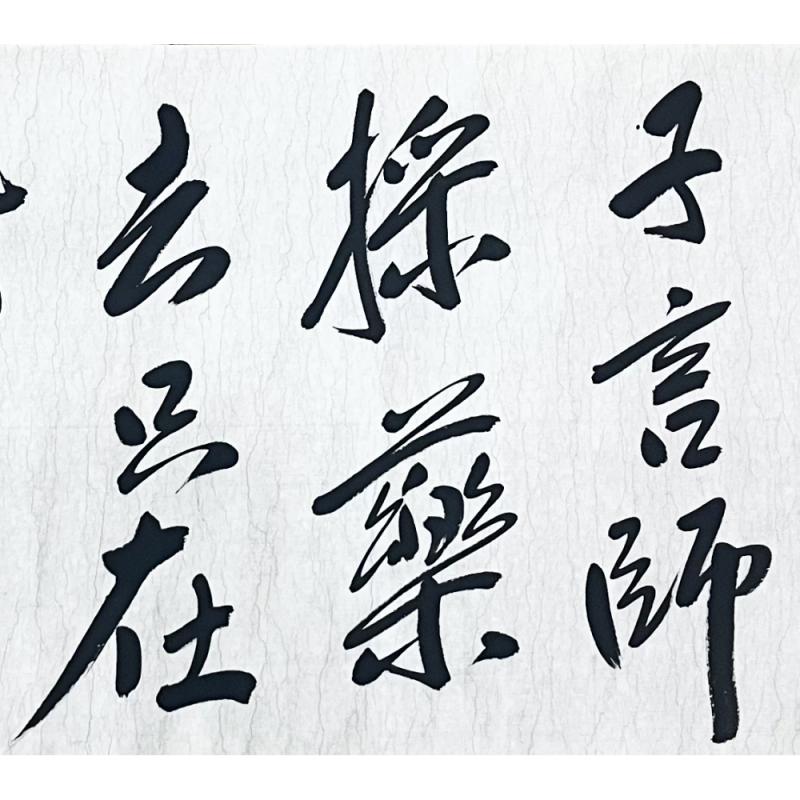 子言師
採藥
去只在